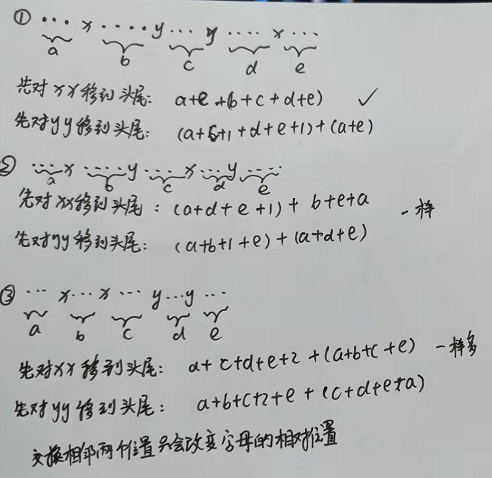 ① ··· x ···· y ··· y ···· x ···
a b c d e
先对xx移到头尾: a+e+(b+c+d+e) ✓
先对yy移到头尾: (a+b+1+d+e+1)+(a+e)
② ····x ·····y ····x ···y ····
a b c d e
先对xx移到头尾: (a+d+e+1)+b+e+a 一样
先对yy移到头尾: (a+b+1+e)+(a+d+e)
③ ··· x···x ··· y···y ···
a b c d e
先对xx移到头尾: a+c+d+e+2+(a+b+c+e) 一样多
先对yy移到头尾: a+b+c+2+e+(c+d+e+a)
交换相邻两个位置只会改变字母的相对位置